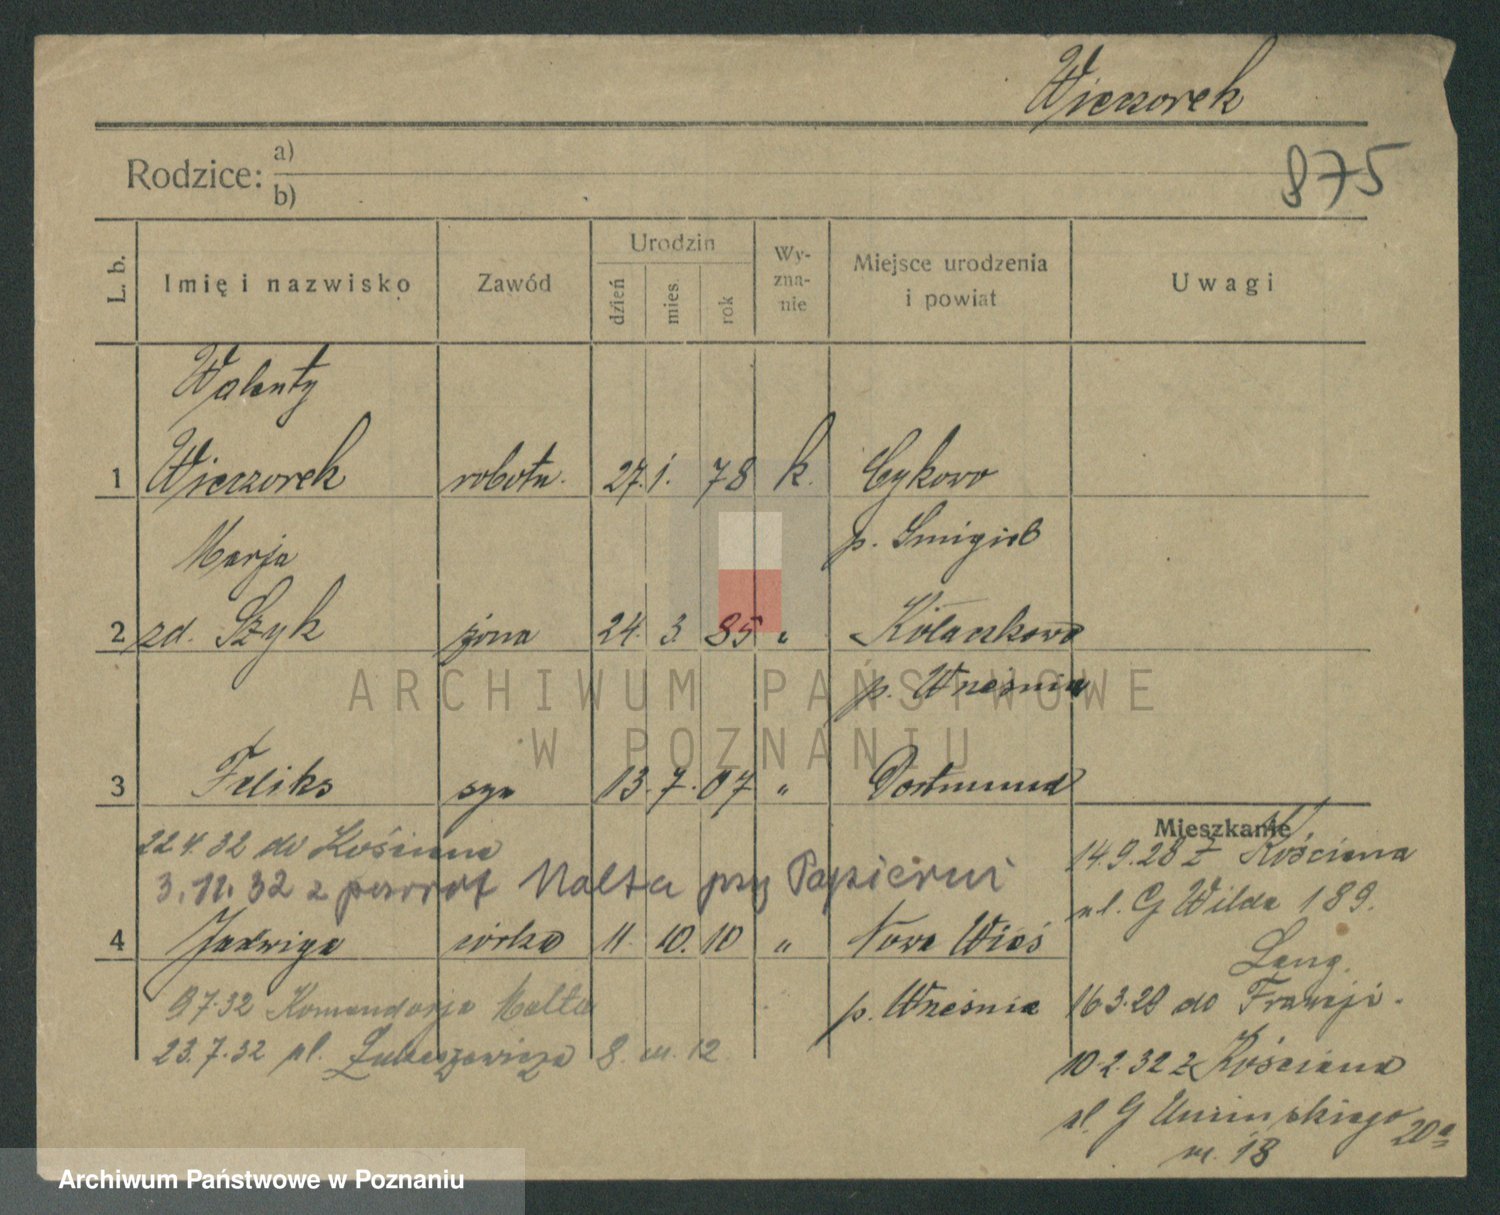 Wieczorek
875
Rodzice: a)
b)
L. b. Imię i nazwisko Zawód Urodzin dzień mies. rok Wy-zna-nie Miejsce urodzenia i powiat Uwagi
Walenty
1 Wieczorek robotn. 27. 1. 78 k. Cykowo
Marja p. Śmigiel
2 zd. Szyk żona 24. 3. 85 " Kołaczkowo
p. Września
3 Feliks syn 13. 7. 07 " Dortmund
22.4.32 do Kościana
3.11.32 z powrot Malta przy Papierni
4 Jadwiga córka 11. 10. 10 " Nowa Wieś
9.7.32 Komandorja Malta p. Września
23.7.32 ul. 8. m. 12
Mieszkanie
14.9.28 z Kościana
ul. G Wilda 189.
Lang.
16.3.29 do Francji.
10.2.32 z Kościana
ul. G 20a
m. 18
ARCHIWUM PAŃSTWOWE
W POZNANIU
Archiwum Państwowe w Poznaniu